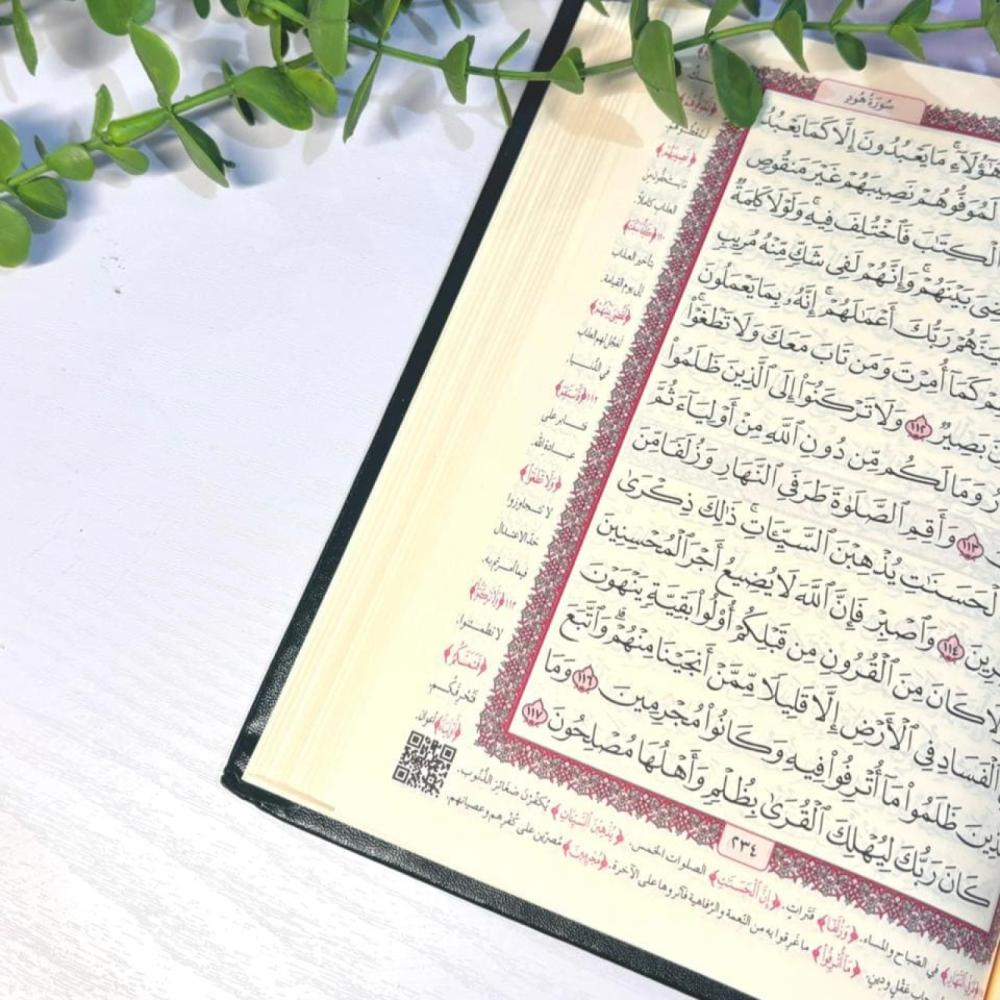 سُورَةُ هُودٍ
هَٰٓؤُلَآءِۚ مَا يَعۡبُدُونَ إِلَّا كَمَا يَعۡبُدُ
لَمُوَفُّوهُمۡ نَصِيبَهُمۡ غَيۡرَ مَنقُوصٖ
ٱلۡكِتَٰبَ فَٱخۡتُلِفَ فِيهِۚ وَلَوۡلَا كَلِمَةٞ
بَيۡنَهُمۡۚ وَإِنَّهُمۡ لَفِي شَكّٖ مِّنۡهُ مُرِيبٖ
رَبُّكَ أَعۡمَٰلَهُمۡۚ إِنَّهُۥ بِمَا يَعۡمَلُونَ
كَمَآ أُمِرۡتَ وَمَن تَابَ مَعَكَ وَلَا تَطۡغَوۡاْۚ
بَصِيرٞ ١١٢ وَلَا تَرۡكَنُوٓاْ إِلَى ٱلَّذِينَ ظَلَمُواْ
وَمَا لَكُم مِّن دُونِ ٱللَّهِ مِنۡ أَوۡلِيَآءَ ثُمَّ
١١٣ وَأَقِمِ ٱلصَّلَوٰةَ طَرَفَيِ ٱلنَّهَارِ وَزُلَفٗا مِّنَ
ٱلۡحَسَنَٰتِ يُذۡهِبۡنَ ٱلسَّيِّـَٔاتِۚ ذَٰلِكَ ذِكۡرَىٰ
١١٤ وَٱصۡبِرۡ فَإِنَّ ٱللَّهَ لَا يُضِيعُ أَجۡرَ ٱلۡمُحۡسِنِينَ
كَانَ مِنَ ٱلۡقُرُونِ مِن قَبۡلِكُمۡ أُوْلُواْ بَقِيَّةٖ يَنۡهَوۡنَ
ٱلۡفَسَادِ فِي ٱلۡأَرۡضِ إِلَّا قَلِيلٗا مِّمَّنۡ أَنجَيۡنَا مِنۡهُمۡۗ وَٱتَّبَعَ
ظَلَمُواْ مَآ أُتۡرِفُواْ فِيهِ وَكَانُواْ مُجۡرِمِينَ ١١٦ وَمَا
كَانَ رَبُّكَ لِيُهۡلِكَ ٱلۡقُرَىٰ بِظُلۡمٖ وَأَهۡلُهَا مُصۡلِحُونَ ١١٧
٢٣٤
﴿نَصِيبَهُمْ﴾
العذاب كاملاً.
تأخير العذاب
إلى يوم القيامة.
لعجّل لهم العذاب
في الدنيا.
١١٢ ﴿فَاسْتَقِمْ﴾
عبادة الله.
﴿وَلَا تَطْغَوْا﴾
لا تتجاوزوا
حد الاعتدال
فيما أمرتم به.
١١٣ ﴿وَلَا تَرْكَنُوا﴾
لا تطمئنوا.
﴿فَتَمَسَّكُمُ﴾
فتحرقكم.
أعوان.
في الصباح والمساء. ﴿وَزُلَفًا﴾ فترات. ﴿إِنَّ الْحَسَنَاتِ﴾ الصلوات الخمس. ﴿يُذْهِبْنَ السَّيِّئَاتِ﴾ يكفرن صغائر الذنوب.
عقل ودين. ﴿مَا أُتْرِفُوا﴾ ما غرقوا به من النعمة والرفاهية فآثروها على الآخرة. ﴿مُجْرِمِينَ﴾ مصرين على كفرهم وعصيانهم.